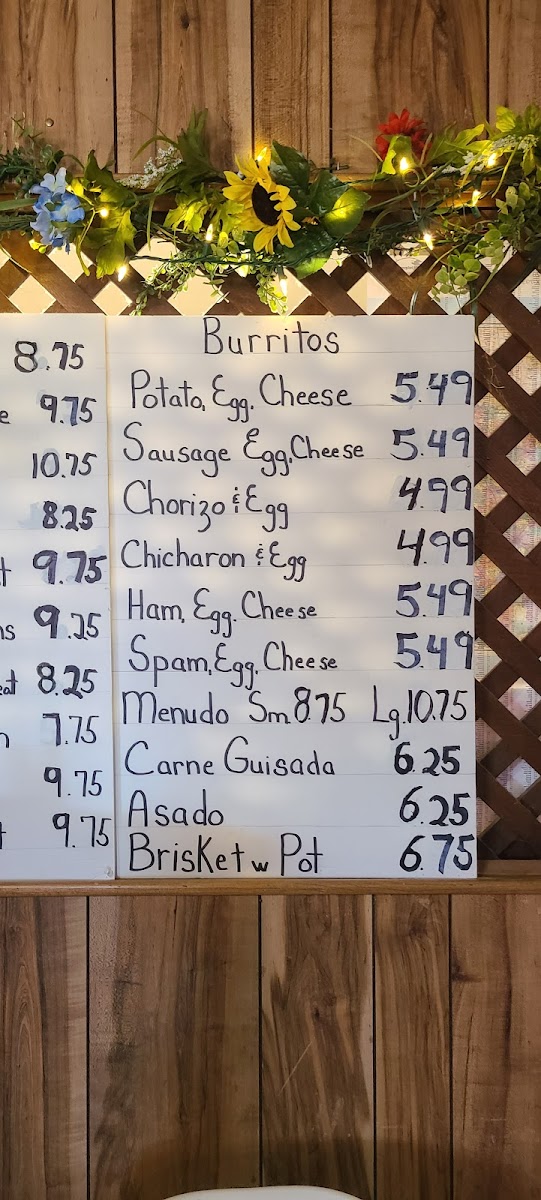 8.75
9.75
10.75
8.25
9.75
9.25
8.25
7.75
9.75
9.75
Burritos
Potato, Egg, Cheese 5.49
Sausage Egg, Cheese 5.49
Chorizo & Egg 4.99
Chicharon & Egg 4.99
Ham, Egg, Cheese 5.49
Spam, Egg, Cheese 5.49
Menudo Sm 8.75 Lg. 10.75
Carne Guisada 6.25
Asado 6.25
Brisket w Pot 6.75